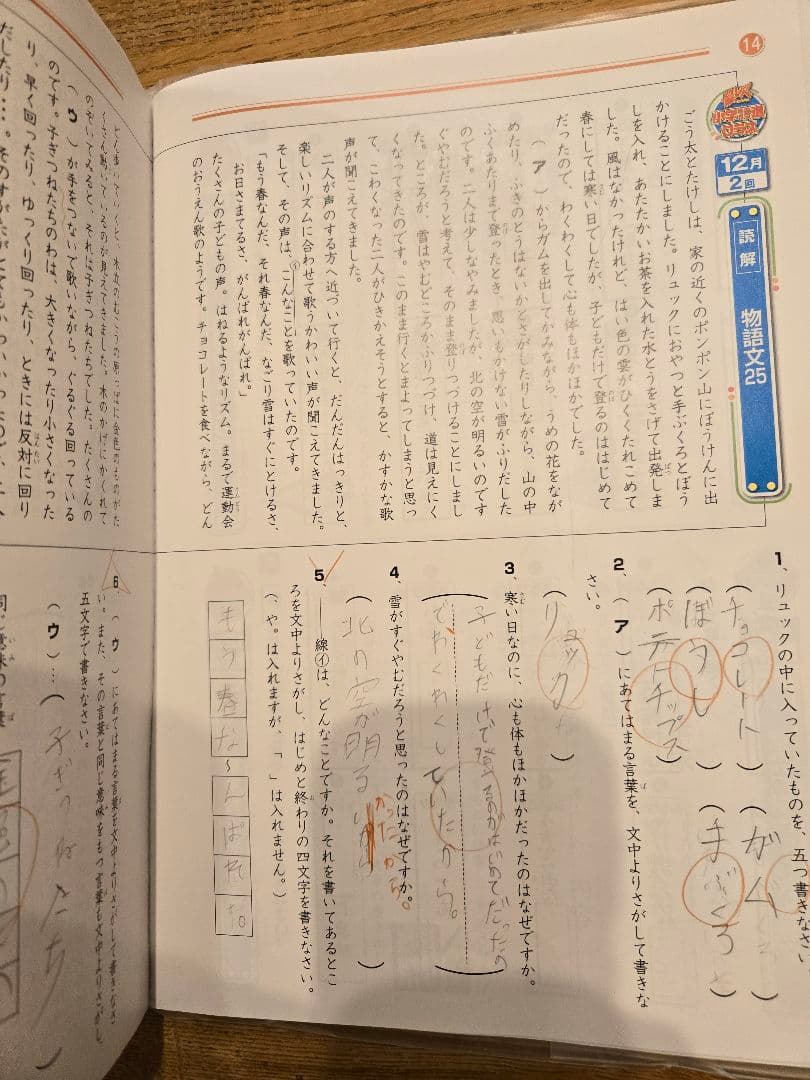 14
12月
2回
読解
物語文25
ごう太とたけしは、家の近くのポンポン山にぼうけんに出
かけることにしました。リュックにおやつと手ぶくろとぼう
しを入れ、あたたかいお茶を入れた水とうをさげて出発しま
した。風はなかったけれど、はい色の雲がひくくたれこめて
春にしては寒い日でしたが、子どもだけで登るのははじめて
だったので、わくわくして心も体もほかほかでした。
（ア）からガムを出してかみながら、うめの花をなが
めたり、ふきのとうはないかとさがしたりしながら、山の中
ふくあたりまで登ったとき、思いもかけない雪がふりだした
のです。二人は少しなやみましたが、北の空が明るいのです
ぐやむだろうと考えて、そのまま登りつづけることにしまし
た。ところが、雪はやむどころかふりつづけ、道は見えにく
くなってきたのです。このまま行くとまよってしまうと思っ
て、こわくなった二人がひきかえそうとすると、かすかな歌
声が聞こえてきました。
二人が声のする方へ近づいて行くと、だんだんはっきりと、
楽しいリズムに合わせて歌うかわいい声が聞こえてきました。
そして、その声は、㋑こんなことを歌っていたのです。
「もう春なんだ、それ春なんだ、なごり雪はすぐにとけるさ、
お日さまてるさ、がんばれがんばれ。」
たくさんの子どもの声。はねるようなリズム。まるで運動会
のおうえん歌のようです。チョコレートを食べながら、どん
のぞいてみると、それは子ぎつねたちでした。たくさんの
（ウ）が手をつないで歌いながら、ぐるぐる回っている
のです。子ぎつねたちのわは、大きくなったり小さくなった
り、早く回ったり、ゆっくり回ったり、ときには反対に回り
1、リュックの中に入っていたものを、五つ書きなさい
（チョコレート）（ガム）
（ぼうし）（手ぶくろ）
（ポテトチップス）
2、（ア）にあてはまる言葉を、文中よりさがして書きな
さい。
（リュック）
3、寒い日なのに、心も体もほかほかだったのはなぜですか。
子どもだけで登るのがはじめてだったの
でわくわくしていたから。
4、雪がすぐやむだろうと思ったのはなぜですか。
（北の空が明る）
かったから。
5、――線㋑は、どんなことですか。それを書いてあるとこ
ろを文中よりさがし、はじめと終わりの四文字を書きなさい。
（、や。は入れますが、「 」は入れません。）
もう春な～んばれな。
6、（ウ）にあてはまる言葉を文中よりさがして書きなさ
い。また、その言葉と同じ意味をもつ言葉も文中よりさがし、
五文字で書きなさい。
（ウ）…（子ぎつねたち）
同じ意味の言葉